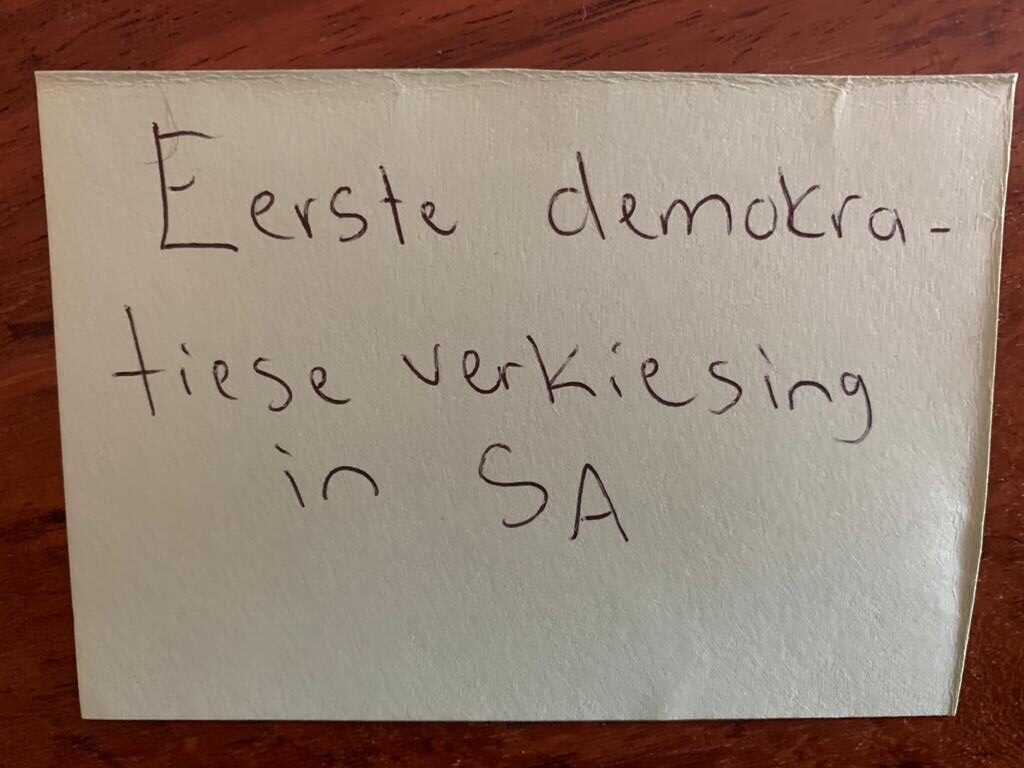 Eerste demokra-
tiese verkiesing
in SA